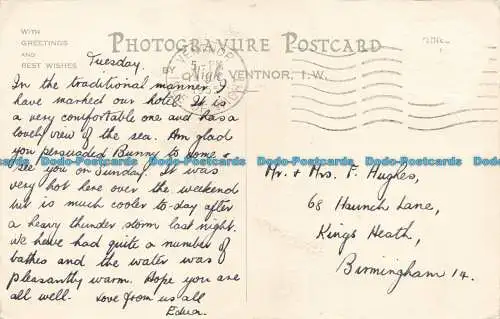 WITH
GREETINGS
AND
BEST WISHES
PHOTOGRAVURE POSTCARD
VENTNOR, I.W.
Tuesday.
In the traditional manner I
have marked our hotel. It is
a very comfortable one and has a
lovely view of the sea. Am glad
you persuaded Bunny to come &
see you on Sunday. It was
very hot here over the weekend
but is much cooler to-day after
a heavy thunder storm last night.
We have had quite a number of
bathes and the water was
pleasantly warm. Hope you are
all well. Love from us all
Mr. & Mrs. F. Hughes,
68 Haunch Lane,
Kings Heath,
Birmingham 14.
Dodo-Postcards Dodo-Postcards Dodo-Postcards Dodo-Postcards